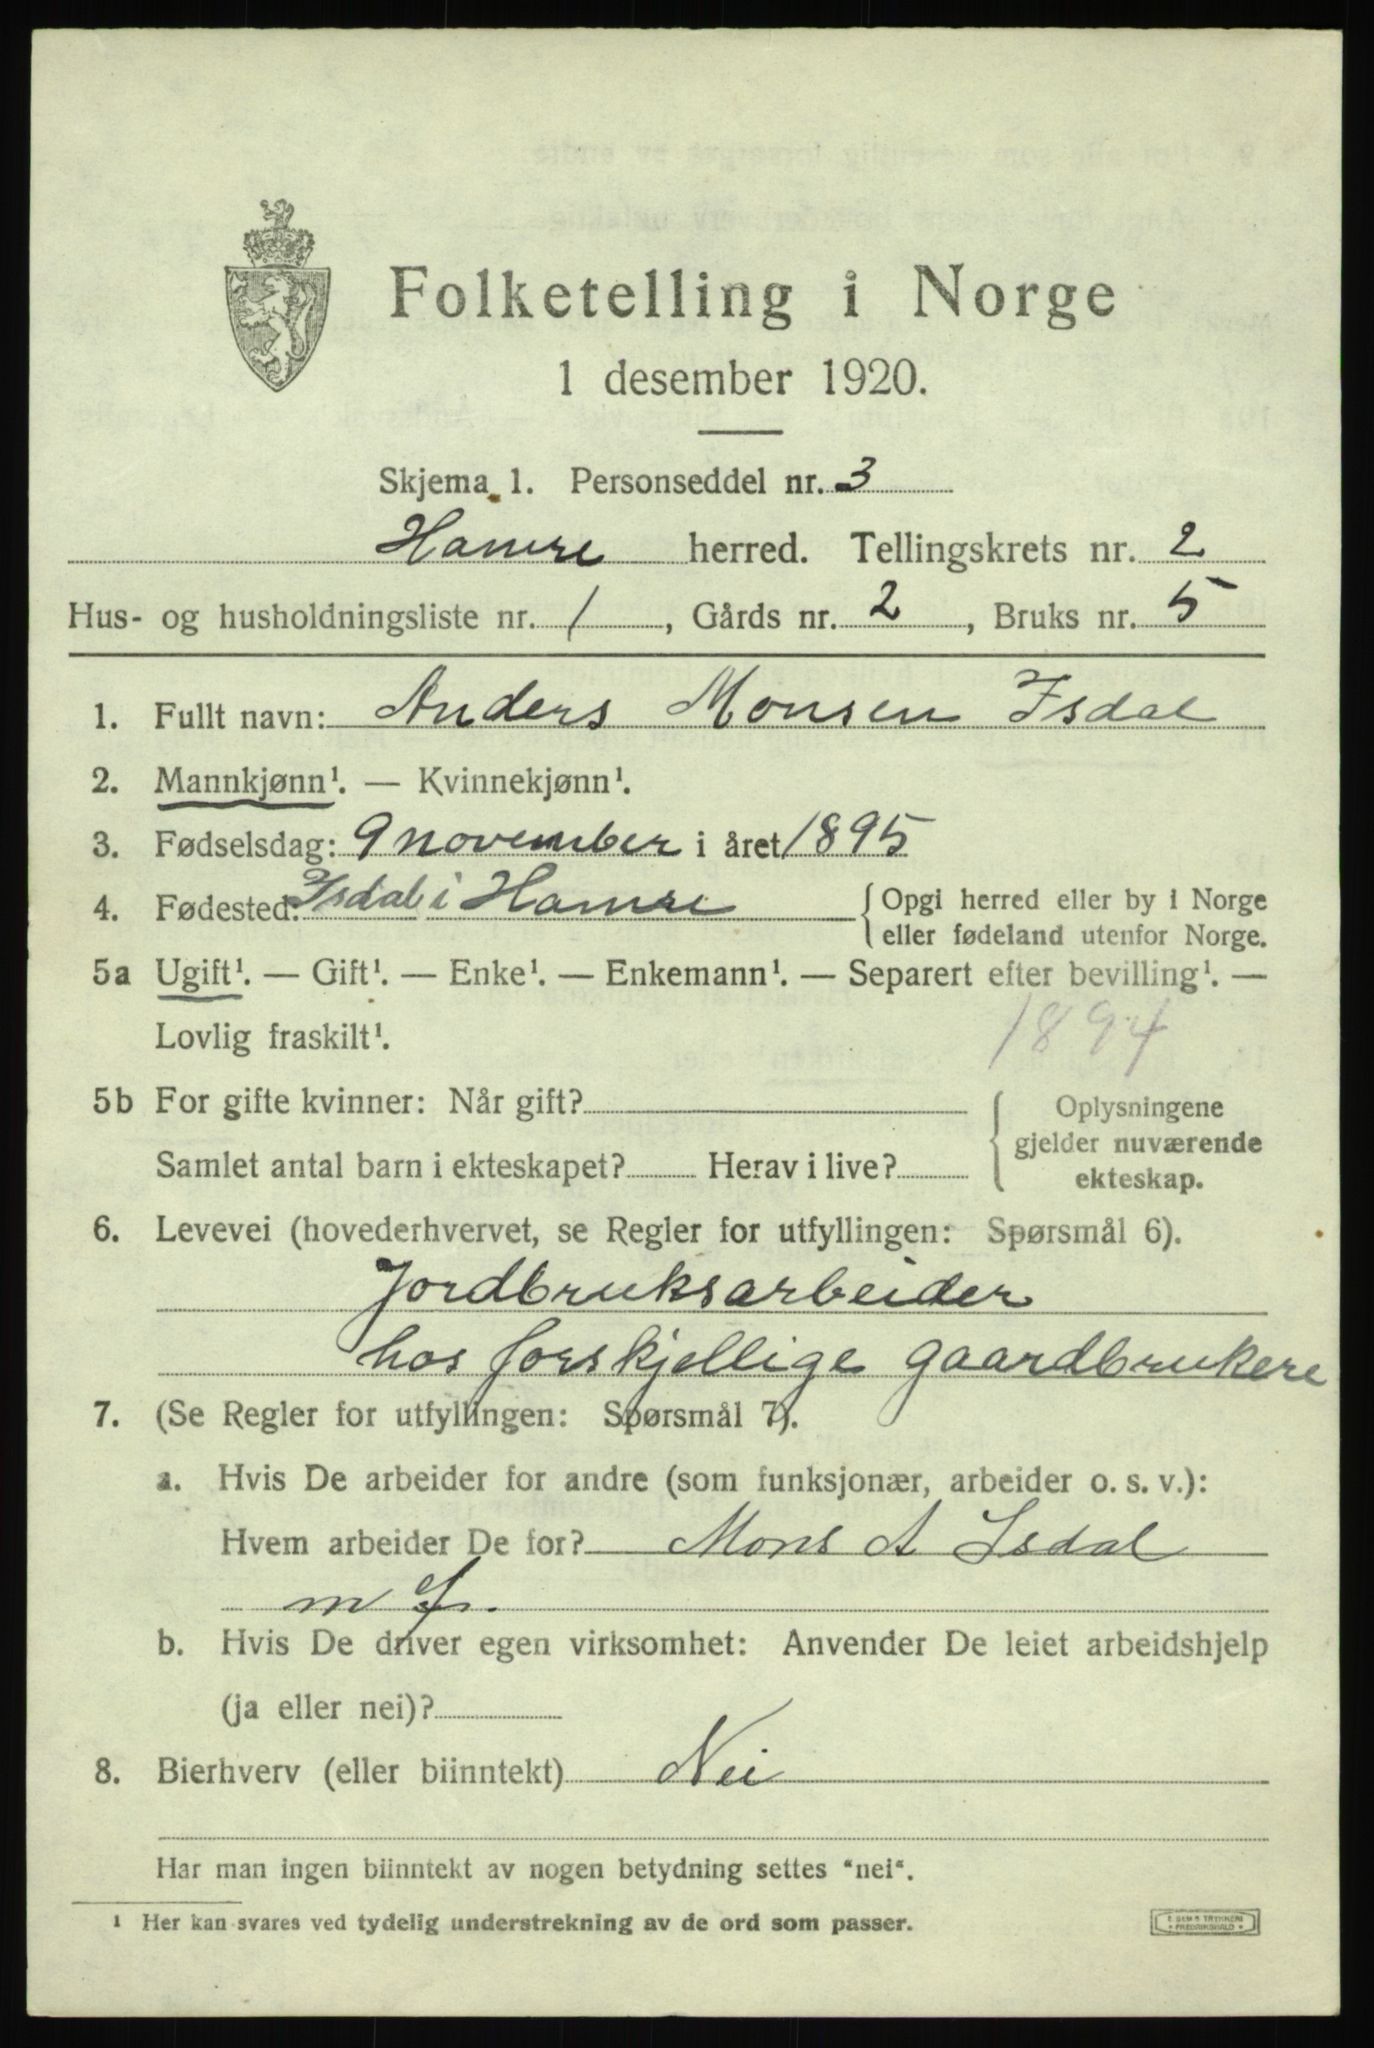 Folketelling i Norge
1 desember 1920.
Skjema 1. Personseddel nr. 3
Hamre herred. Tellingskrets nr. 2
Hus- og husholdningsliste nr. 1, Gårds nr. 2, Bruks nr. 5
1. Fullt navn: Anders Monsen Isdal
2. Mannkjønn¹. — Kvinnekjønn¹.
3. Fødselsdag: 9 november i året 1895
4. Fødested: Isdal i Hamre { Opgi herred eller by i Norge
eller fødeland utenfor Norge.
5a Ugift¹. — Gift¹. — Enke¹. — Enkemann¹. — Separert efter bevilling¹. —
Lovlig fraskilt¹. 1894
5b For gifte kvinner: Når gift? { Oplysningene
gjelder nuværende
Samlet antal barn i ekteskapet? Herav i live?
ekteskap.
6. Levevei (hovederhvervet, se Regler for utfyllingen: Spørsmål 6).
Jordbruksarbeider
hos forskjellige gaardbrukere
7. (Se Regler for utfyllingen: Spørsmål 7).
a. Hvis De arbeider for andre (som funksjonær, arbeider o. s. v.):
Hvem arbeider De for? Mons A Isdal
m fl.
b. Hvis De driver egen virksomhet: Anvender De leiet arbeidshjelp
(ja eller nei)?
8. Bierhverv (eller biinntekt) Nei
Har man ingen biinntekt av nogen betydning settes "nei".
¹ Her kan svares ved tydelig understrekning av de ord som passer.